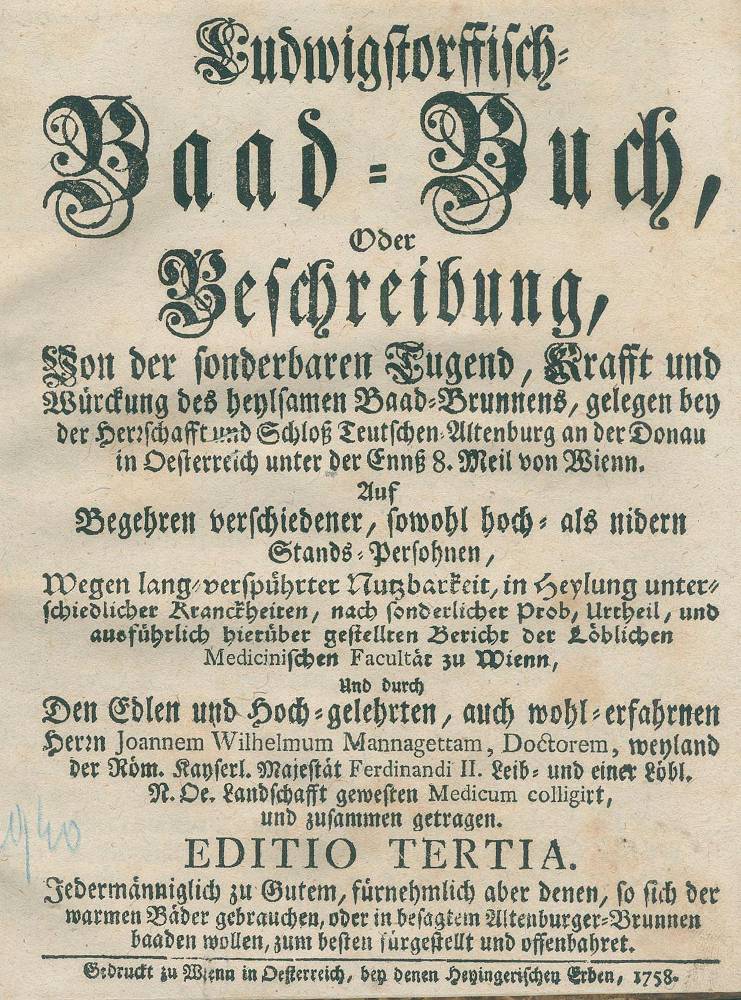 Ludwigstorffisch-
Baad-Buch,
Oder
Beschreibung,
Von der sonderbaren Tugend, Krafft und
Würckung des heylsamen Baad-Brunnens, gelegen bey
der Herrschafft und Schloß Teutschen-Altenburg an der Donau
in Oesterreich unter der Ennß 8. Meil von Wienn.
Auf
Begehren verschiedener, sowohl hoch- als nidern
Stands-Persohnen,
Wegen lang-verspührter Nutzbarkeit, in Heylung unter-
schiedlicher Kranckheiten, nach sonderlicher Prob, Urtheil, und
ausführlich hierüber gestellten Bericht der Löblichen
Medicinischen Facultät zu Wienn,
Und durch
Den Edlen und Hoch-gelehrten, auch wohl-erfahrnen
Herrn Joannem Wilhelmum Mannagettam, Doctorem, weyland
der Röm. Kayserl. Majestät Ferdinandi II. Leib- und einer Löbl.
N. Oe. Landschafft gewesten Medicum colligirt,
und zusammen getragen.
EDITIO TERTIA.
Jedermänniglich zu Gutem, fürnehmlich aber denen, so sich der
warmen Bäder gebrauchen, oder in besagtem Altenburger-Brunnen
baaden wollen, zum besten fürgestellt und offenbahret.
Gedruckt zu Wienn in Oesterreich, bey denen Heyingerischen Erben, 1758.
940